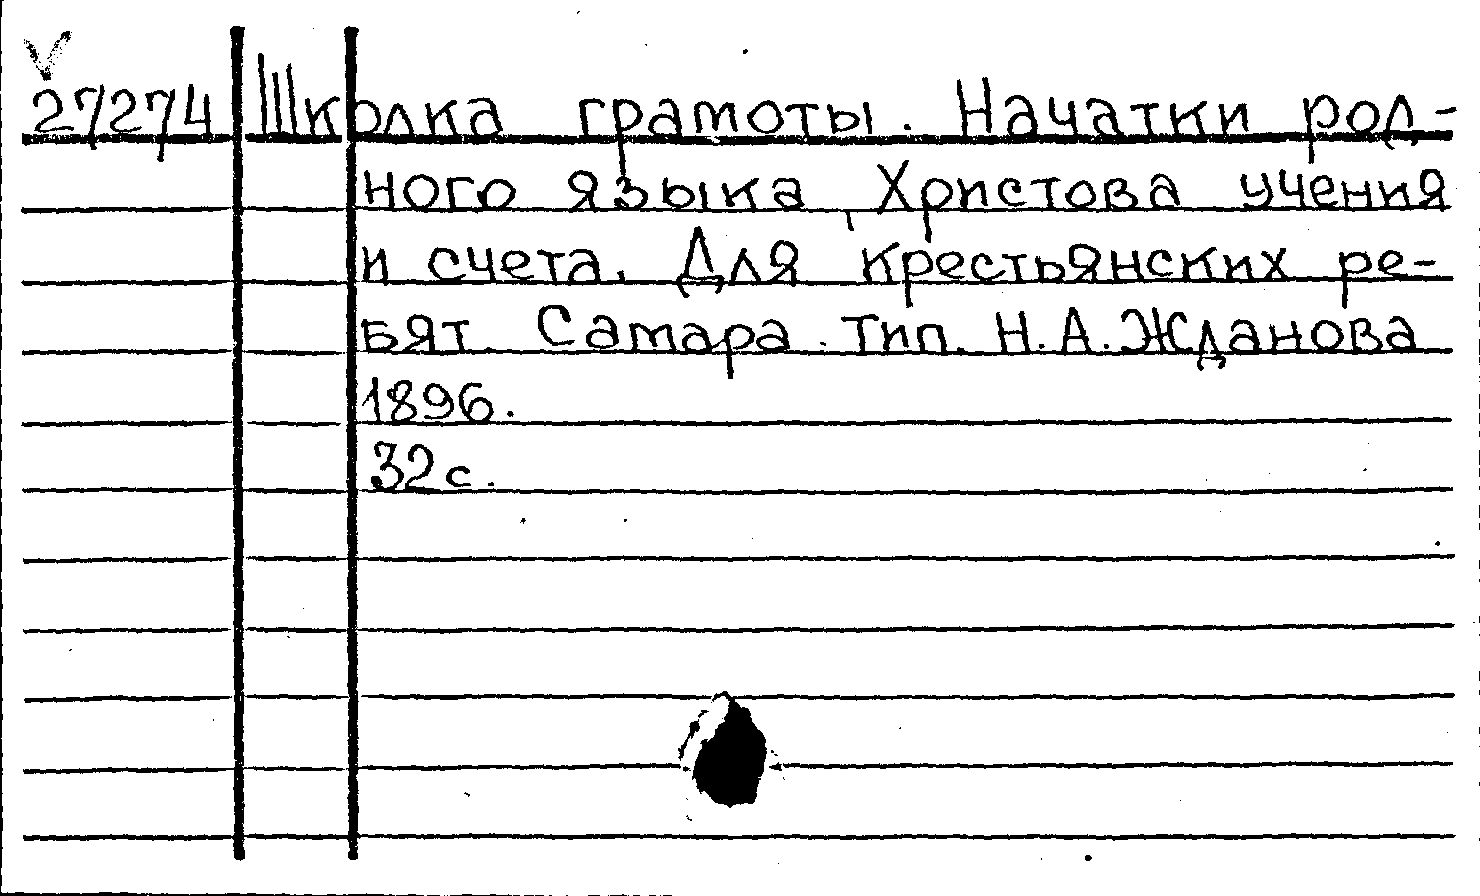 V
27274 Школка грамоты. Начатки род-
ного языка, Христова учения
и счета. Для крестьянских ре-
бят. Самара. Тип. Н.А.Жданова
1896.
32с.